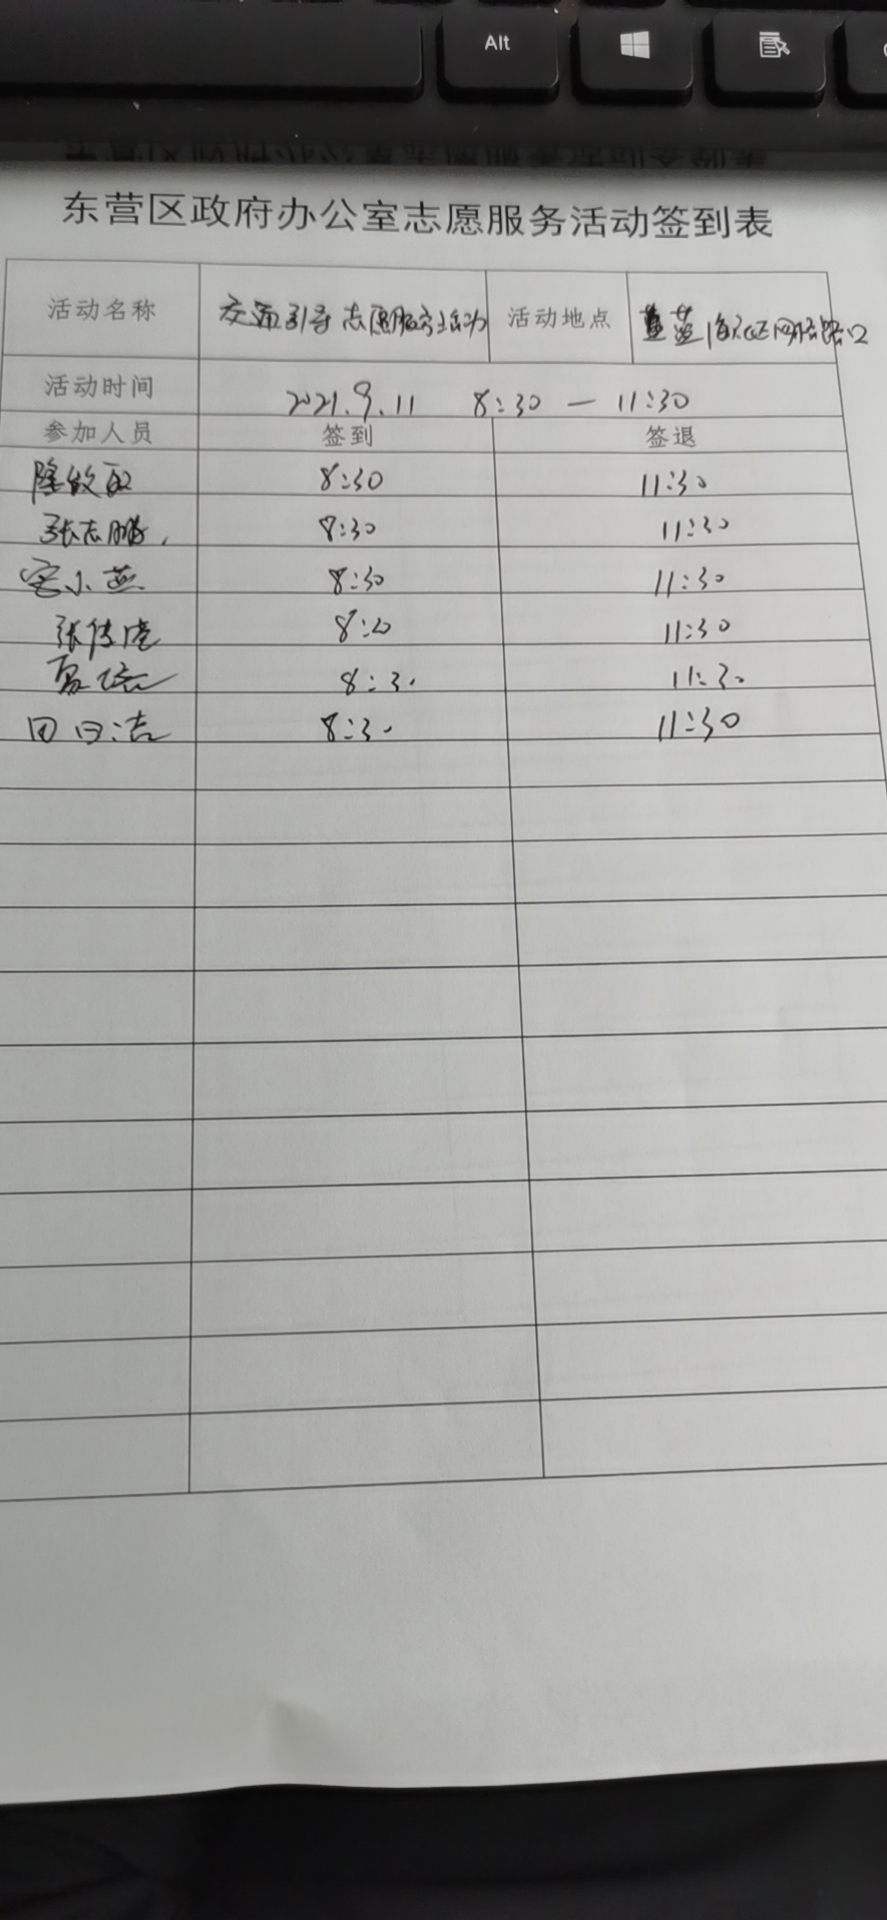 Alt
东营区政府办公室志愿服务活动签到表
活动名称 交通引导志愿服务活动 活动地点 路口
活动时间 2021.9.11 8:30 — 11:30
参加人员 签到 签退
8:30 11:30
张志鹏 8:30 11:30
8:30 11:30
张 8:30 11:30
8:30 11:30
田日洁 8:30 11:30